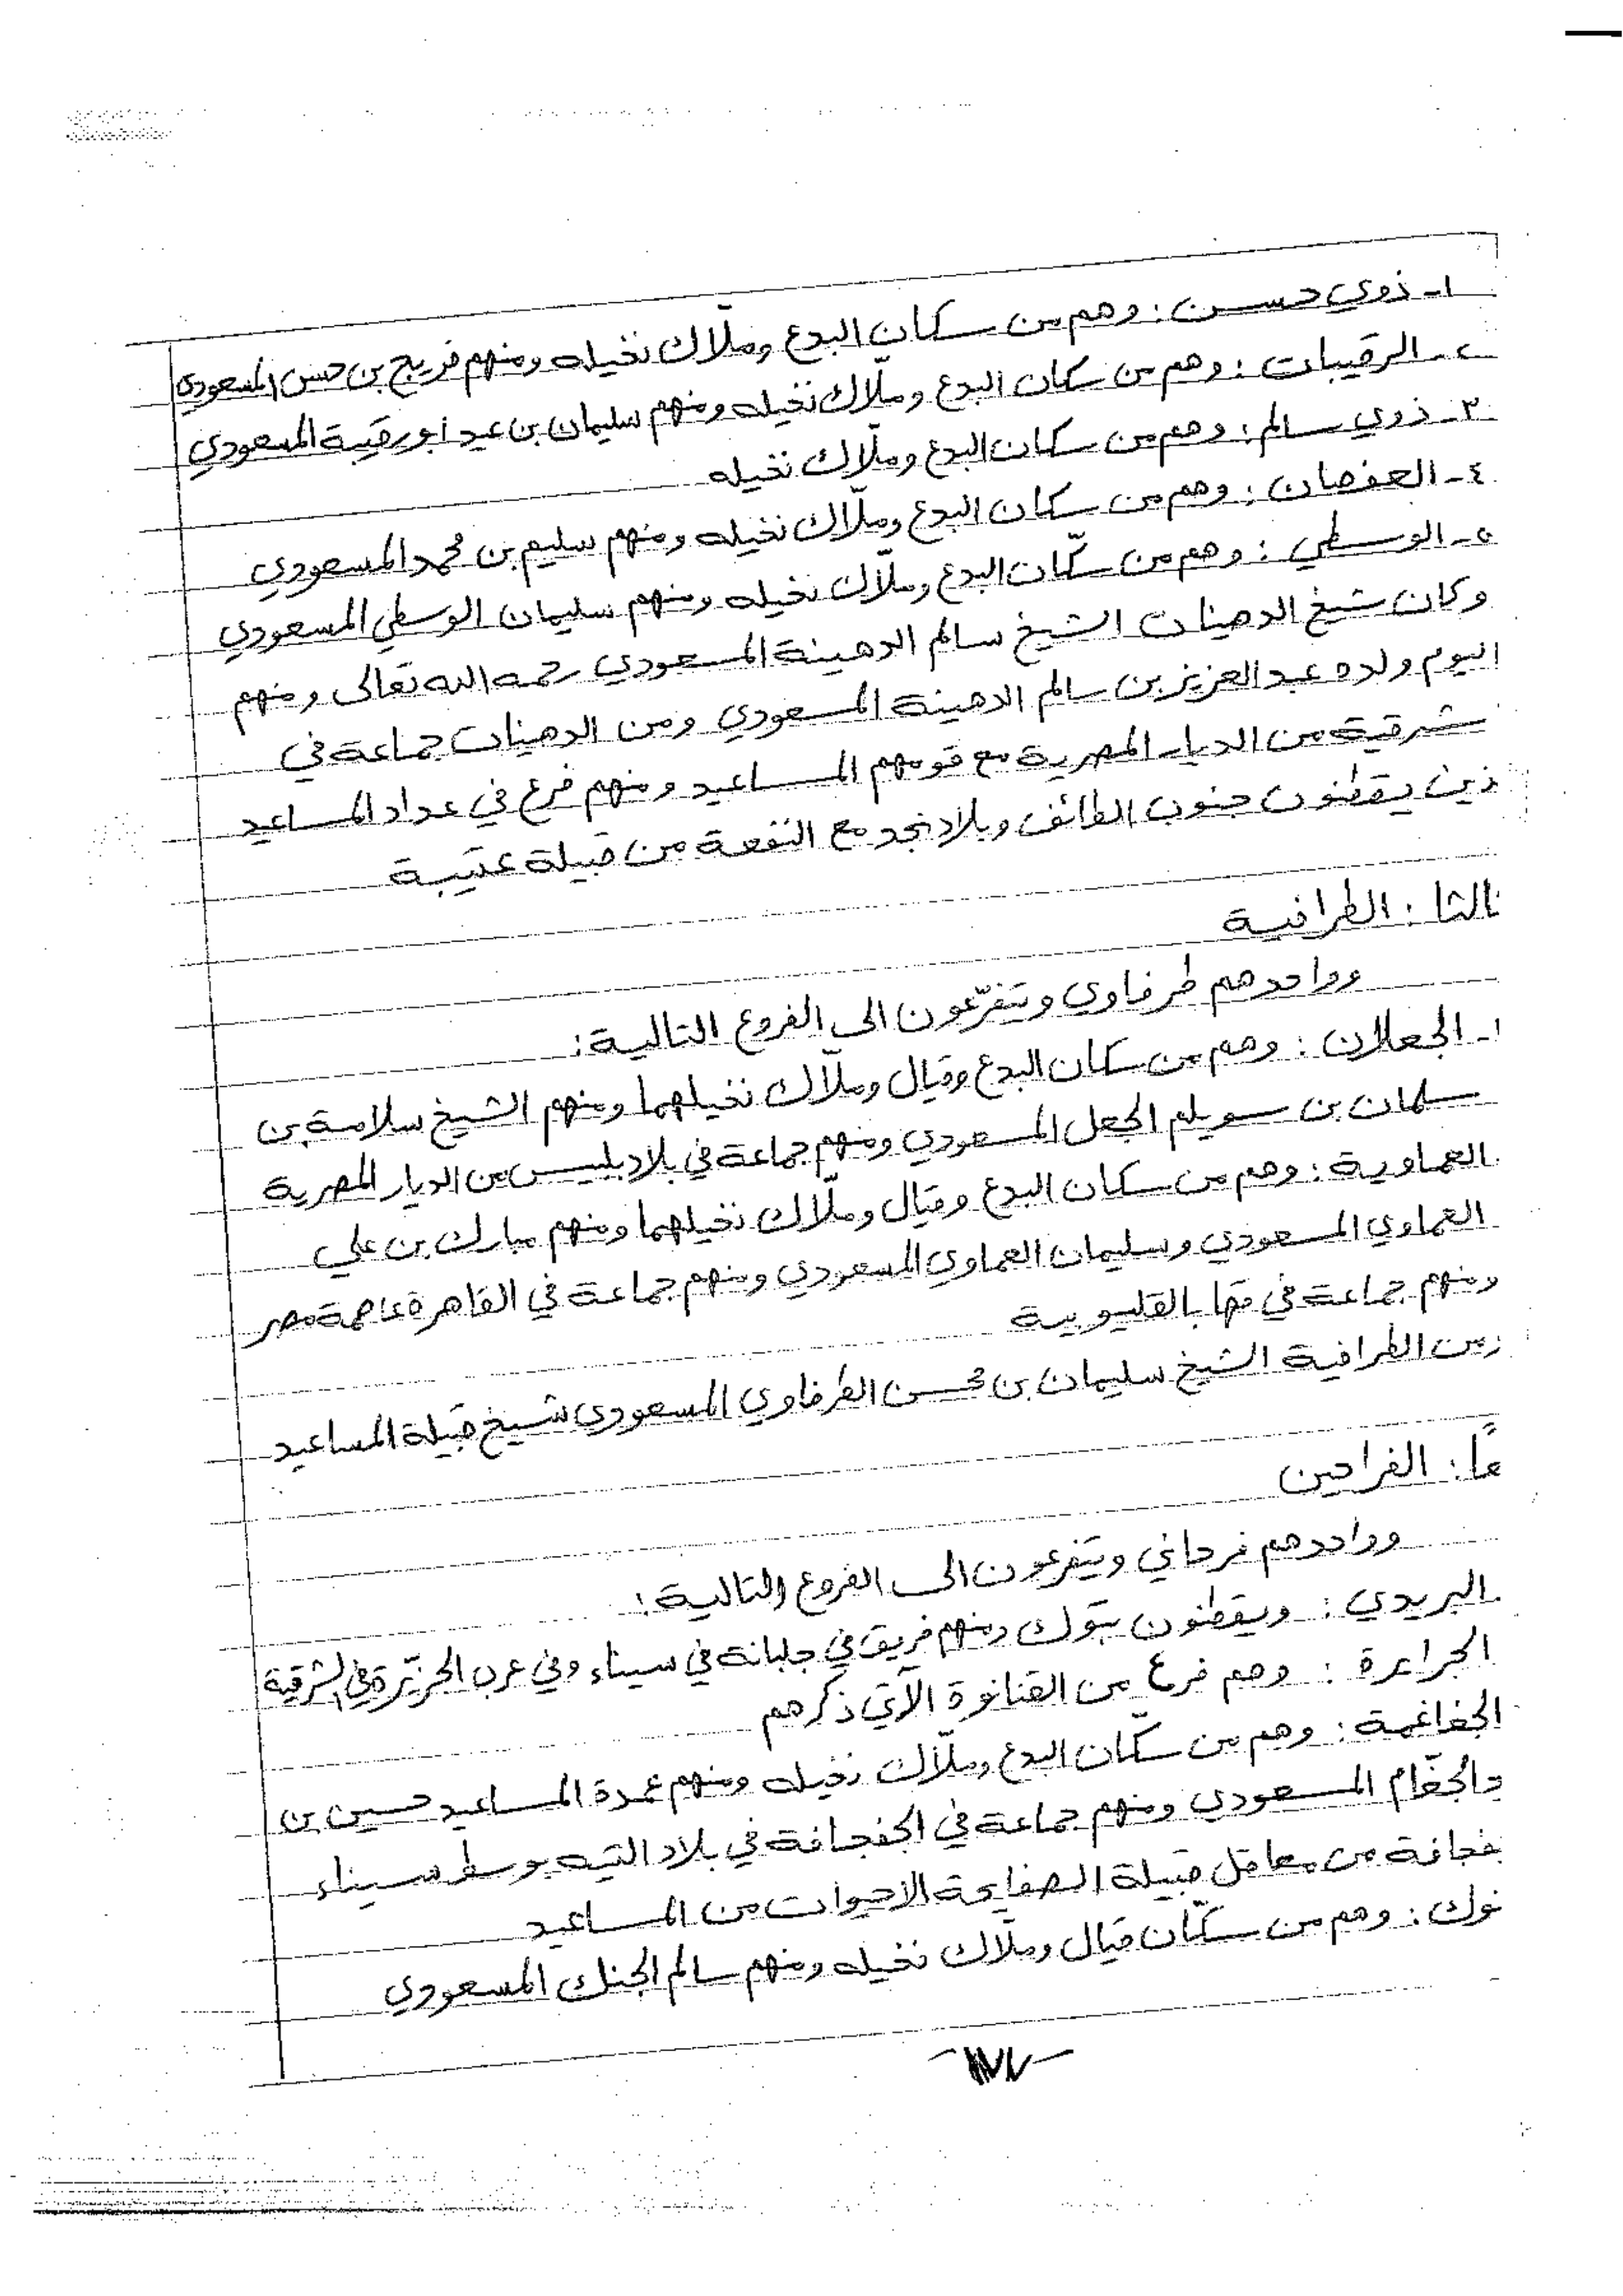 ١- ذوي حسن : وهم من سكان البدع وملّاك نخيله ومنهم فريج بن حسن المسعودي
٢- الرقيبات : وهم من سكان البدع وملّاك نخيله ومنهم سليمان بن عيد أبورقيبة المسعودي
٣- ذوي سالم : وهم من سكان البدع وملّاك نخيله
٤- العفصان : وهم من سكان البدع وملّاك نخيله ومنهم سليم بن محمد المسعودي
٥- الوسطي : وهم من سكّان البدع وملّاك نخيله ومنهم سليمان الوسطي المسعودي
وكان شيخ الدهينات الشيخ سالم الدهينة المسعودي رحمه الله تعالى ومنهم
اليوم ولده عبد العزيز بن سالم الدهينة المسعودي ومن الدهينات جماعة في
شرقية من الديار المصرية مع قومهم المساعيد ومنهم فرع في عداد المساعيد
ذين يقطنون جنوب الطائف وبلاد نجد مع النفعة من قبيلة عتيبة
ثالثا : الطرافية
وواحدهم طرفاوي ويتفرّعون الى الفروع التالية :
١- الجعلان : وهم من سكان البدع وقيال وملّاك نخيلهما ومنهم الشيخ سلامة بن
سلمان بن سويلم الجعل المسعودي ومنهم جماعة في بلاد بلبيس من الديار المصرية
العماوية : وهم من سكان البدع وقيال وملّاك نخيلهما ومنهم مبارك بن علي
العماوي المسعودي وسليمان العماوي المسعودي ومنهم جماعة في القاهرة عاصمة مصر
ومنهم جماعة في قها بالقليوبية
ومن الطرافية الشيخ سليمان بن محسن الطرفاوي المسعودي شيخ قبيلة المساعيد
عًا : الفراحين
وواحدهم فرحاني ويتفرعون الى الفروع التالية :
البريدي : ويقطنون تبوك ومنهم فريق في جلبانة في سيناء وفي عرب الجزيّرة في الشرقية
الجراعرة : وهم فرع من القنانوة الآتي ذكرهم
الجغاغمة : وهم من سكّان البدع وملّاك نخيله ومنهم عمدة المساعيد حسين بن
الجغّام المسعودي ومنهم جماعة في الجفجافة في بلاد التيه بوسط سيناء
فجافة من معاقل قبيلة الصفايحة الاحيوات من المساعيد
نوك : وهم من سكّان قيال وملّاك نخيله ومنهم سالم الجنك المسعودي